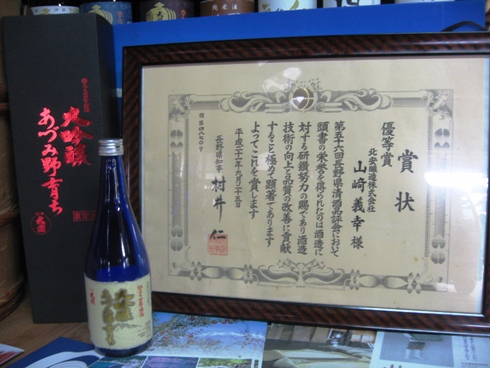 純米酒
大吟醸
あづみ野育ち
賞状
優等賞
北安醸造株式会社
山﨑義幸 様
第五十六回長野県清酒品評会において
頭書の栄誉を得られたのは酒造に
対する研鑽努力の賜であり酒造
技術の向上と品質の改善に貢献
すること極めて顕著であります
よってこれを賞します
平成二十一年九月二十五日
長野県知事 村井 仁